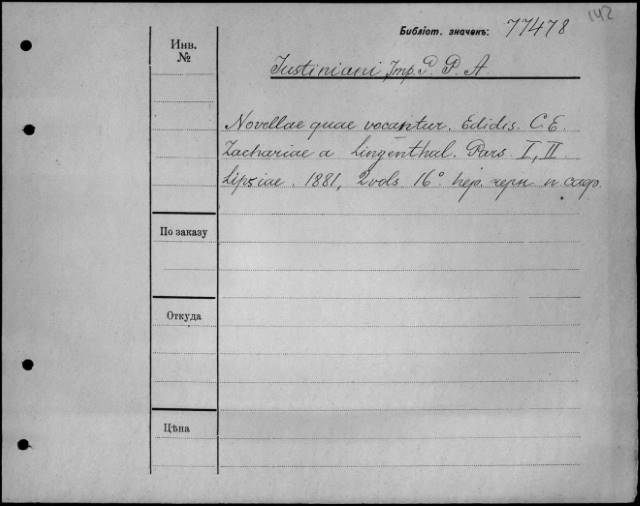 142
Библіот. значекъ: 77478
Инв.
№
Iustiniani Imp. P. P. A.
Novellae quae vocantur. Edidis. C. E.
Zachariae a Lingenthal. Pars I, II
Lipsiae. 1881, 2 vols 16° пер. черн и сафр.
По заказу
Откуда
Цѣна